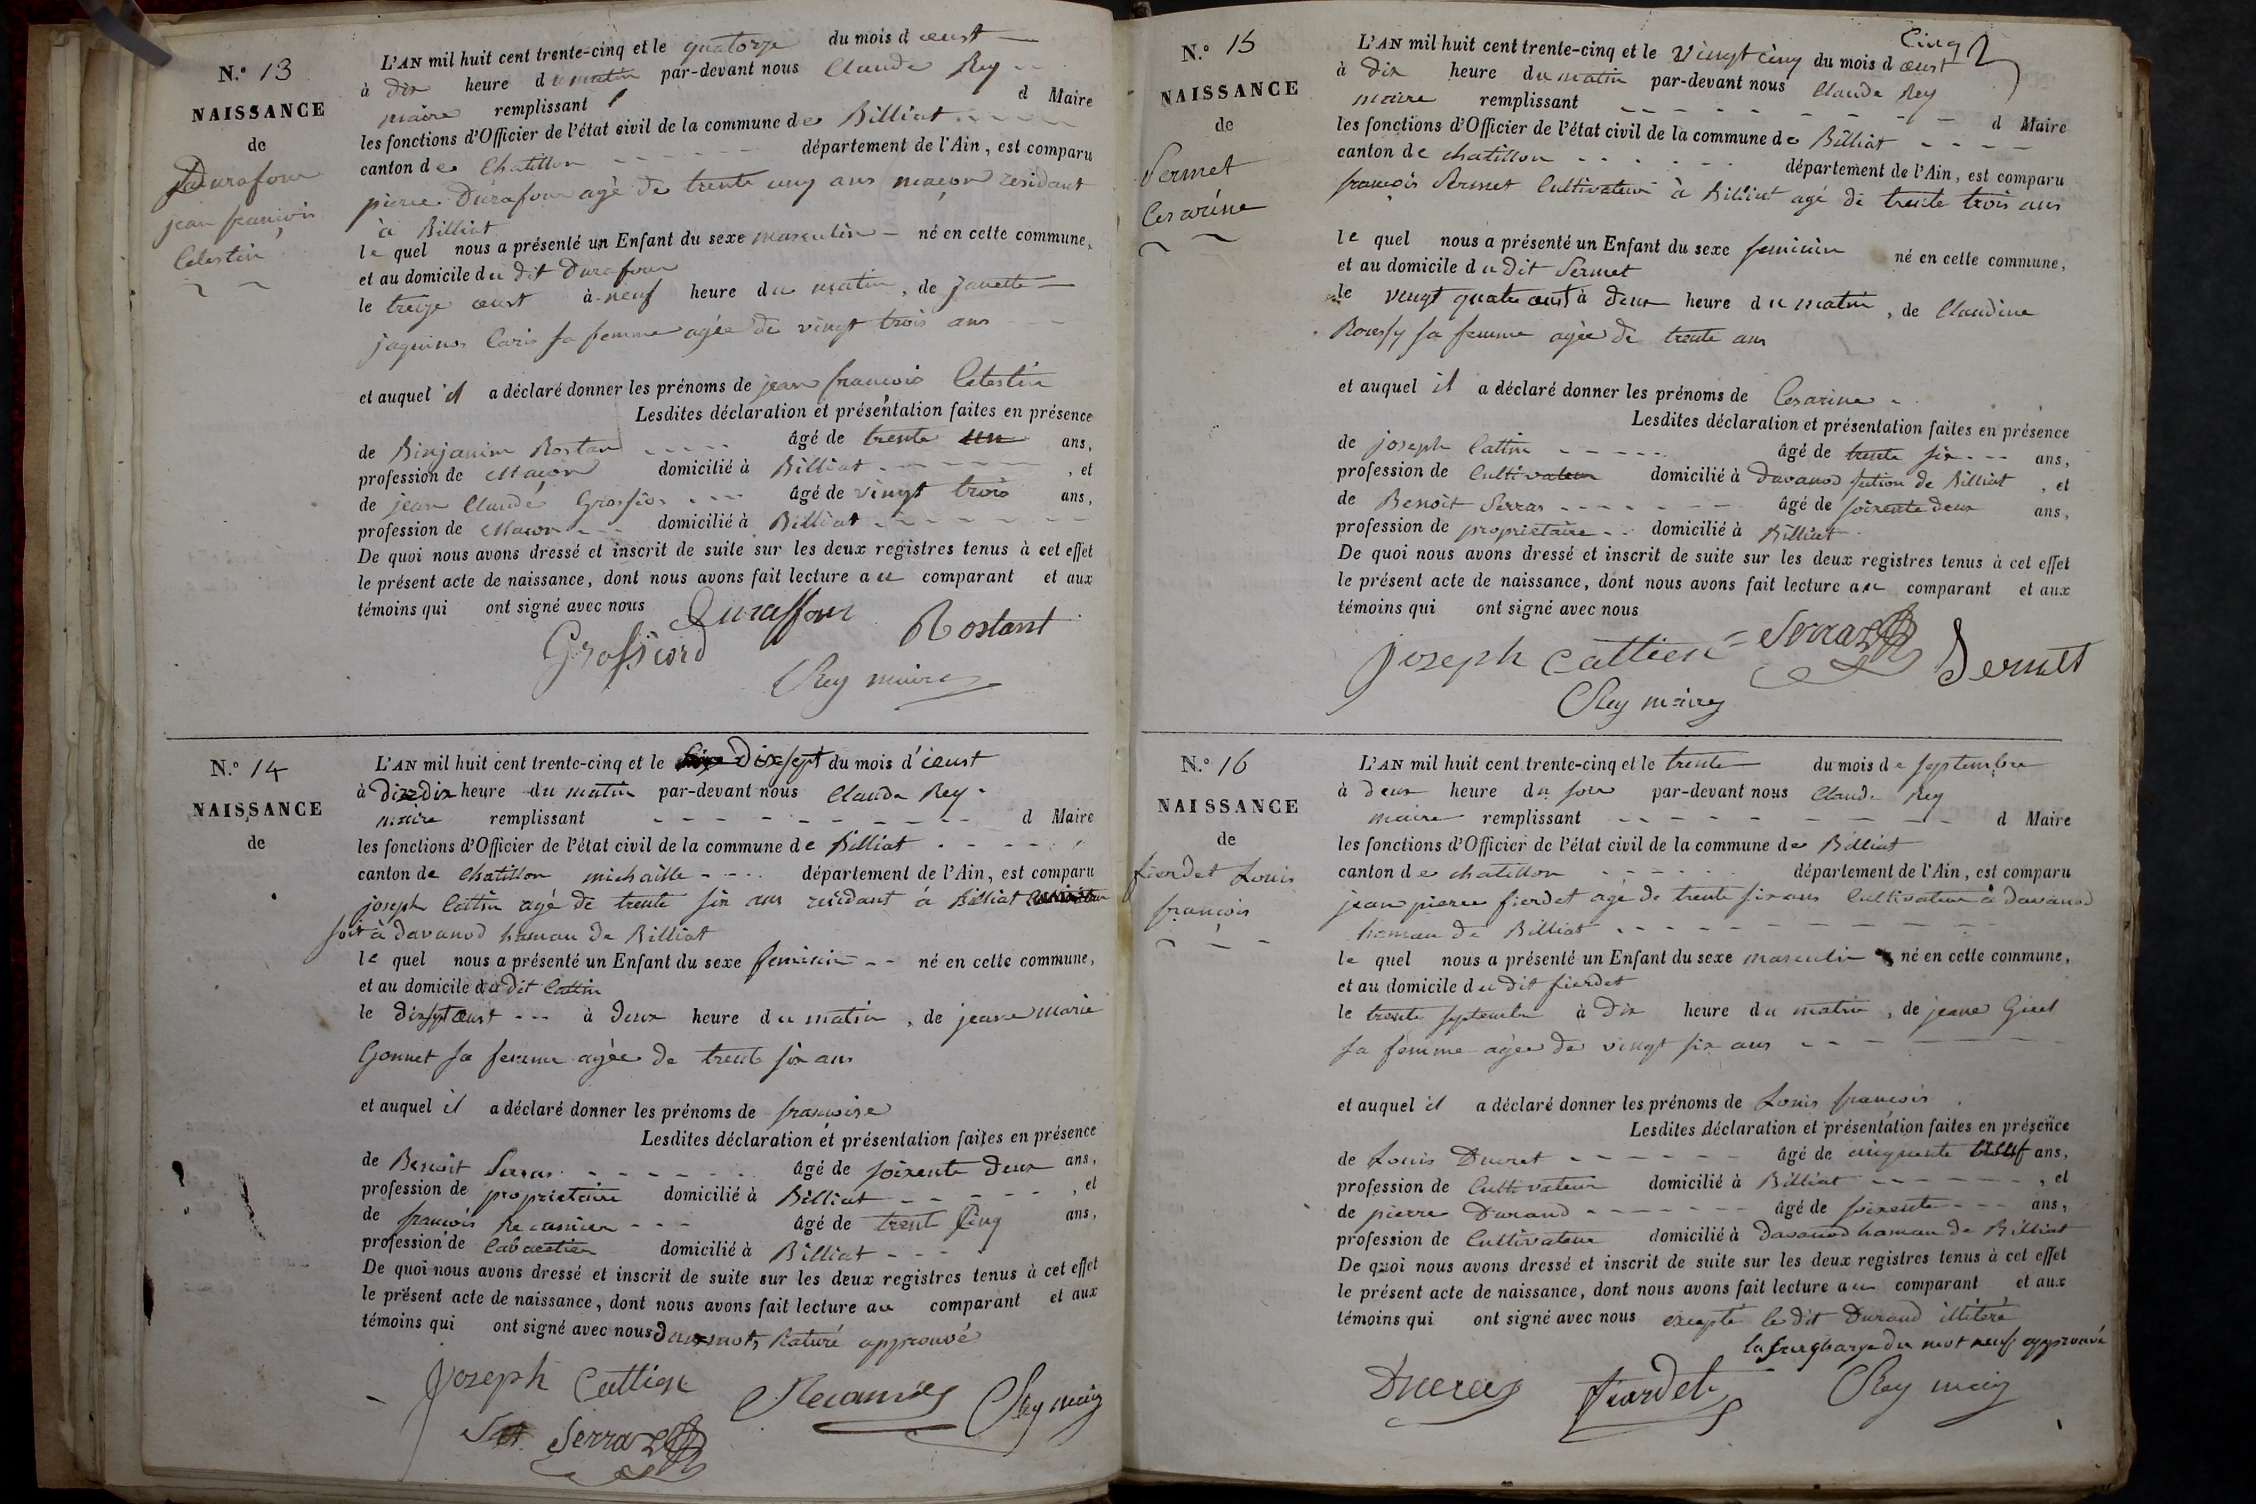 N.° 13
NAISSANCE
de
Durafour
jean françois
Celestin
L'AN mil huit cent trente-cinq et le quatorze du mois d œust
à dix heure du matin par-devant nous Claude Rey
maire remplissant d Maire
les fonctions d'Officier de l'état civil de la commune de Billiat
canton de Chatillon département de l'Ain, est comparu
pierre Durafour agé de trente cinq ans maçon residant
à Billiat
le quel nous a présenté un Enfant du sexe masculin né en cette commune,
et au domicile du dit Durafour
le treize œust à neuf heure du matin, de Janette
jaquinos Caris sa femme agée de vingt trois ans
et auquel il a déclaré donner les prénoms de jean françois Celestin
Lesdites déclaration et présentation faites en présence
de Binjanim Rostan âgé de trente un ans,
profession de Maçon domicilié à Billiat, et
de jean Claude Grossior âgé de vingt trois ans,
profession de Maçon domicilié à Billiat
De quoi nous avons dressé et inscrit de suite sur les deux registres tenus à cet effet
le présent acte de naissance, dont nous avons fait lecture au comparant et aux
témoins qui ont signé avec nous
Duraffour
Rostant
Grossiord
Rey maire
N.° 14
NAISSANCE
de
L'AN mil huit cent trente-cinq et le Dix sept du mois d'œust
à dix heure du matin par-devant nous Claude Rey
maire remplissant d Maire
les fonctions d'Officier de l'état civil de la commune de Billiat
canton de Chatillon michaille département de l'Ain, est comparu
joseph Cattin agé de trente six ans residant à Billiat
soit à davanod hamau de Billiat
le quel nous a présenté un Enfant du sexe feminin né en cette commune,
et au domicile du dit Cattin
le dix sept œust à deux heure du matin, de jeane marie
Gonnet sa femme agée de trente six ans
et auquel il a déclaré donner les prénoms de françoise
Lesdites déclaration et présentation faites en présence
de Benoit Serras âgé de soixente deux ans,
profession de proprietaire domicilié à Billiat, et
de françois Recamier âgé de trente Cinq ans,
profession de Cabaretier domicilié à Billiat
De quoi nous avons dressé et inscrit de suite sur les deux registres tenus à cet effet
le présent acte de naissance, dont nous avons fait lecture au comparant et aux
témoins qui ont signé avec nous deux mots Raturé approuvé
Joseph Cattien
Recamier
Rey maire
Serraz
N.° 15
NAISSANCE
de
Sermet
Cesarine
Cinq
L'AN mil huit cent trente-cinq et le vingt cinq du mois d œust
à dix heure du matin par-devant nous Claude Rey
maire remplissant d Maire
les fonctions d'Officier de l'état civil de la commune de Billiat
canton de chatillon département de l'Ain, est comparu
françois Sermet Cultivateur à Billiat agé de trente trois ans
le quel nous a présenté un Enfant du sexe feminin né en cette commune,
et au domicile du dit Sermet
le vingt quatre œust à deux heure du matin, de Claudine
Roussy sa femme agée de trente ans
et auquel il a déclaré donner les prénoms de Cesarine
Lesdites déclaration et présentation faites en présence
de joseph Cattin âgé de trente six ans,
profession de Cultivateur domicilié à Davanod section de Billiat, et
de Benoit Serras âgé de soixente deux ans,
profession de proprietaire domicilié à Billiat
De quoi nous avons dressé et inscrit de suite sur les deux registres tenus à cet effet
le présent acte de naissance, dont nous avons fait lecture au comparant et aux
témoins qui ont signé avec nous
Joseph Cattien
Serraz
Sermet
Rey maire
N.° 16
NAISSANCE
de
fierdet Louis
françois
L'AN mil huit cent trente-cinq et le trente du mois de septembre
à deux heure du soir par-devant nous Claude Rey
maire remplissant d Maire
les fonctions d'Officier de l'état civil de la commune de Billiat
canton de chatillon département de l'Ain, est comparu
jean pierre fierdet agé de trente six ans Cultivateur à davanod
hamau de Billiat
le quel nous a présenté un Enfant du sexe masculin né en cette commune,
et au domicile du dit fierdet
le trente septembre à dix heure du matin, de jeane Ginet
sa femme agée de vingt six ans
et auquel il a déclaré donner les prénoms de Louis françois
Lesdites déclaration et présentation faites en présence
de Louis Ducret âgé de cinquente neuf ans,
profession de Cultivateur domicilié à Billiat, et
de pierre Durand âgé de soixente ans,
profession de Cultivateur domicilié à Davanod hamau de Billiat
De quoi nous avons dressé et inscrit de suite sur les deux registres tenus à cet effet
le présent acte de naissance, dont nous avons fait lecture au comparant et aux
témoins qui ont signé avec nous excepté le dit Durand illiteré
la surcharge du mot neuf approuvé
Ducret
fiardet
Rey maire